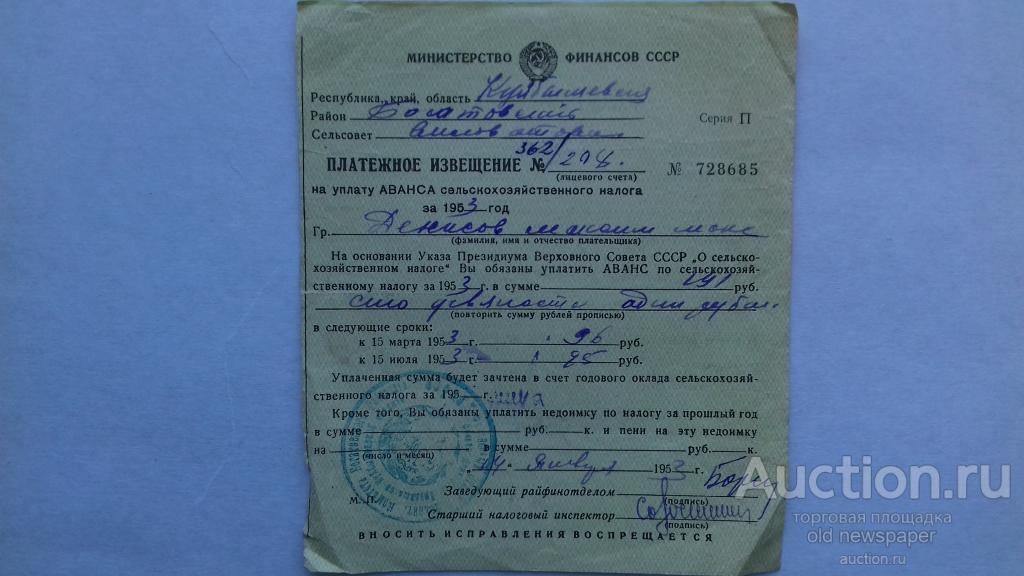 МИНИСТЕРСТВО ФИНАНСОВ СССР
Республика, край, область Куйбышевская
Район Богатовский
Серия П
Сельсовет
ПЛАТЕЖНОЕ ИЗВЕЩЕНИЕ № 362/
(лицевого счета)
№ 728685
на уплату АВАНСА сельскохозяйственного налога
за 1953 год
Гр. Денисов Максим Макс
(фамилия, имя и отчество плательщика)
На основании Указа Президиума Верховного Совета СССР „О сельско-
хозяйственном налоге“ Вы обязаны уплатить АВАНС по сельскохозяй-
ственному налогу за 1953 г. в сумме 191 руб.
сто девяносто один рубль
(повторить сумму рублей прописью)
в следующие сроки:
к 15 марта 1953 г. 96 руб.
к 15 июля 1953 г. 95 руб.
Уплаченная сумма будет зачтена в счет годового оклада сельскохозяй-
ственного налога за 195 г.
Кроме того, Вы обязаны уплатить недоимку по налогу за прошлый год
в сумме руб. к. и пени на эту недоимку
на в сумме руб. к.
(число и месяц)
„14“ Января 1953 г.
Заведующий райфинотделом
М. П. (подпись)
Старший налоговый инспектор
(подпись)
ВНОСИТЬ ИСПРАВЛЕНИЯ ВОСПРЕЩАЕТСЯ
Auction.ru
торговая площадка
old newspaper
auction.ru